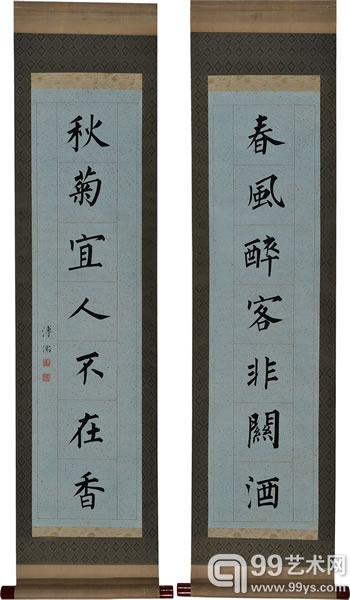 春風醉客非關酒
秋菊宜人不在香
溥
99艺术网
www.99ys.com